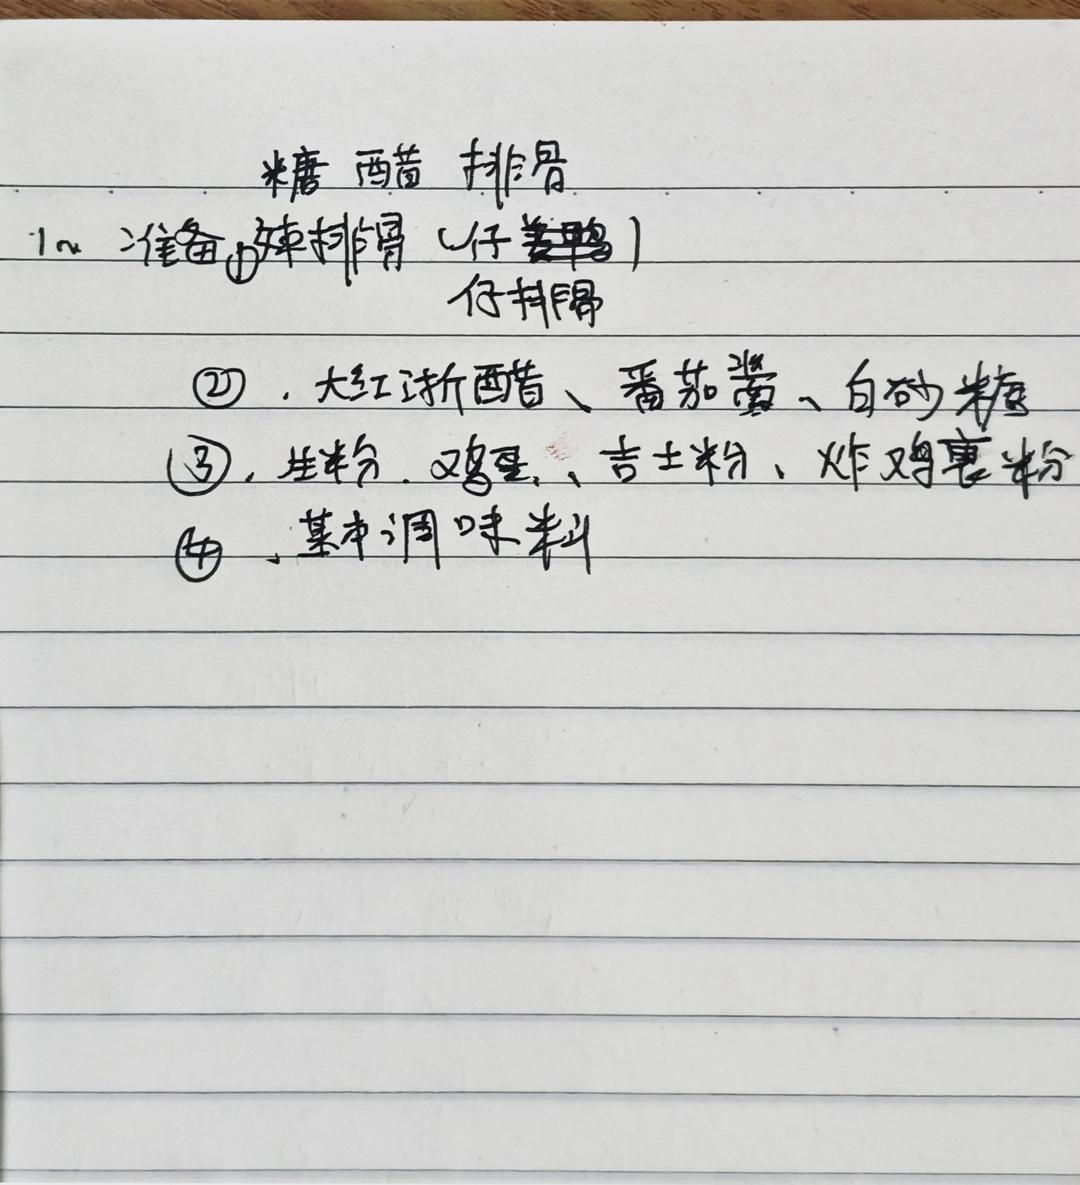 糖醋排骨
1、准备①冻排骨(仔姜鸭)
仔排骨
②、大红浙醋、番茄酱、白砂糖
③、生粉、鸡蛋、吉士粉、炸鸡裹粉
④、基本调味料